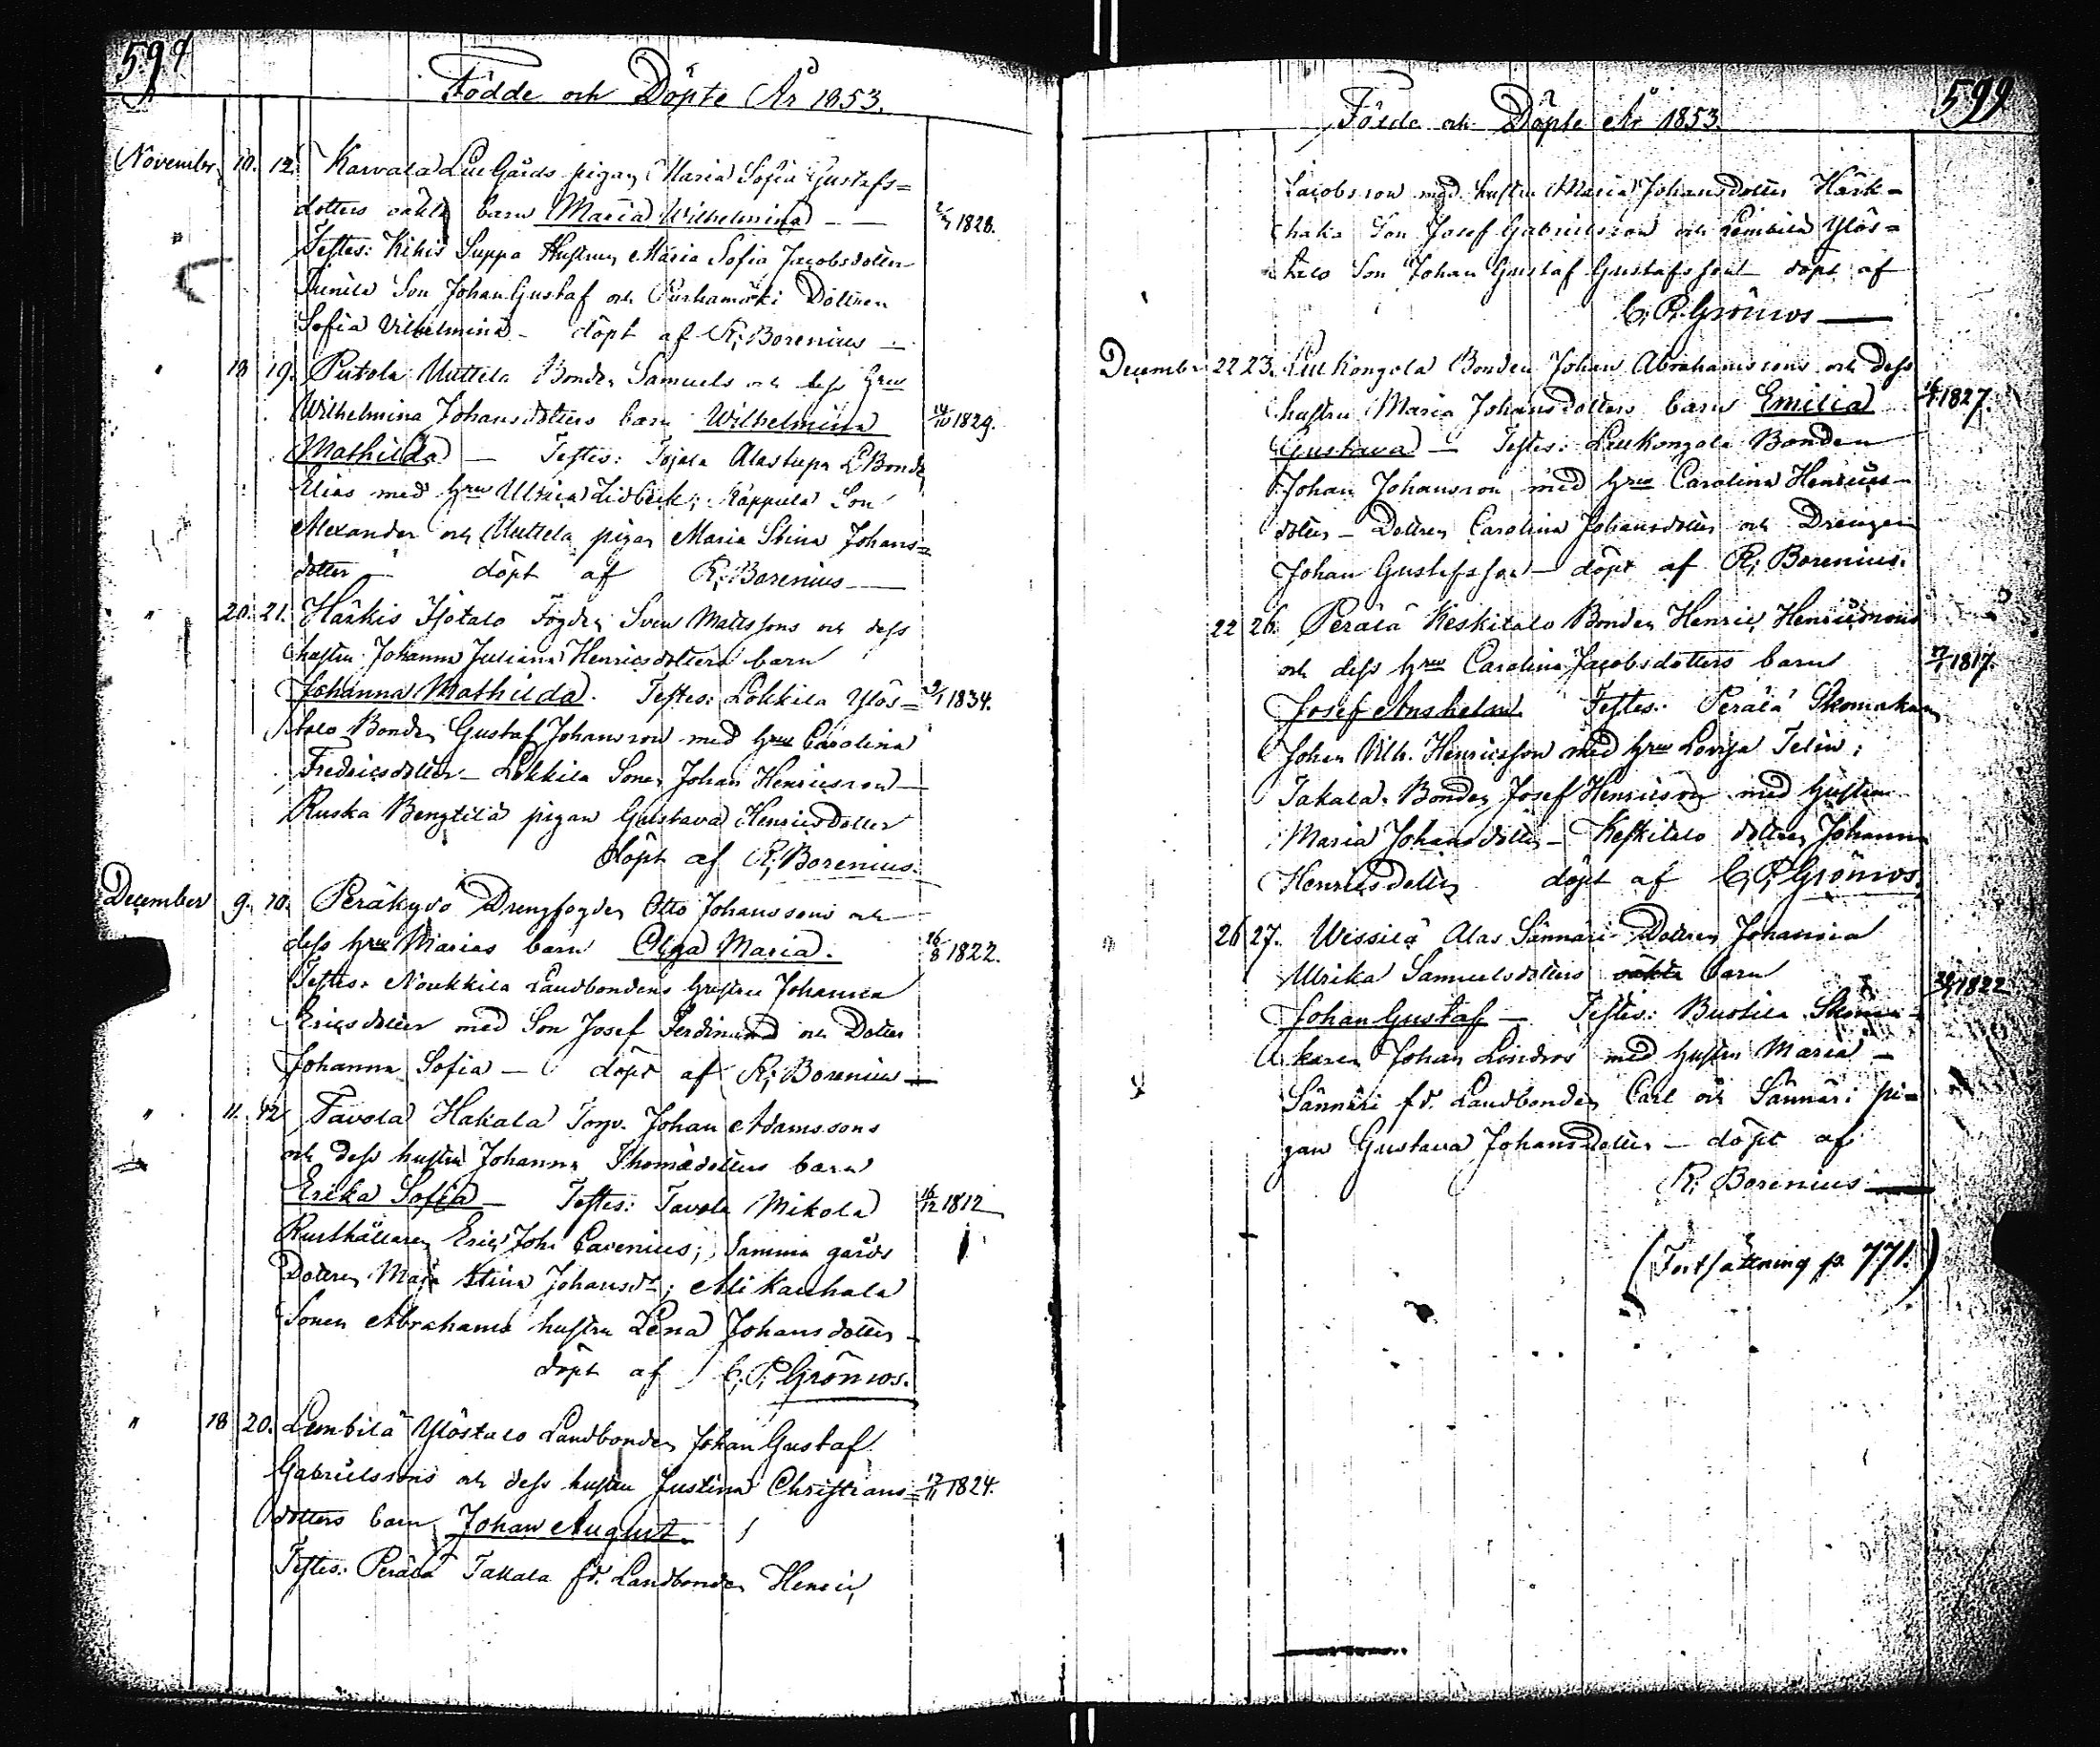 594
Födde och Döpte År 1853.
November 10. 12. Karvala LuuGårds pigan Maria Sofia Gustafs=
dotters oäkta barn Maria Wilhelmina 2/7 1828.
Testes: Kikis Suppa Hustrun Maria Sofia Jacobsdotter
Son Johan Gustaf och Dottren
Sofia Vilhelmina - döpt af R; Borenius
18 19. Putola Uuttela Bonden Samuels och dess hru
Wilhelmina Johansdotters barn Wilhelmina 14/10 1829.
Mathilda — Testes: Tojala Alastupa LBonde
Elias med hru Ulrica Lidbeck; Kappula Son
Alexander och Uuttela pigan Maria Stina Johans=
dotter — döpt af R; Borenius
" 20. 21. Härkis Isotalo Fogden Sven Mattssons och dess
hustru Johanna Juliana Henricsdotters barn
Johanna Mathilda. Testes: Lokkila Ylös= 3/1 1834.
talo Bonden Gustaf Johansson med hru Carolina
Fredricsdotter - Lokkila Sonen Johan Henricsson
Ruska Bengtilä pigan Gustava Henricsdotter
döpt af R; Borenius.
December 9. 10. Peräkyrö Drengfogden Otto Johanssons och
dess hru Marias barn Olga Maria. 16/8 1822.
Testes: Noukkila Landbondens hustru Johanna
Ericsdotter med Son Josef Ferdinand och Dotter
Johanna Sofia — döpt af R; Borenius
" 11. 12 Tavola Hakala Torp. Johan Adamssons
och dess hustru Johanna Thomædotters barn
Erika Sofia — Testes: Tavola Mikola 16/12 1812
Rusthållaren Eric Joh. Cavenius; Samma gårds
Dottren Maja Stina Johansdr; Alikauhala
Sonen Abrahams hustru Lena Johansdotter
döpt af C; P; Grönros.
" 18 20. Lembilä Ylöstalo Landbonden Johan Gustaf
Gabrielssons och dess hustru Justina Christians= 17/11 1824.
dotters barn Johan August.
Testes: Perälä Takala fd. Landbonden Henric
599
Födde och Döpte År 1853.
Jacobsson med hustru Maria Johansdotter Härk=
haka Son Josef Gabrielsson och Lembilä Ylös=
talo Son Johan Gustaf Gustafsson döpt af
C; P. Grönros
December 22 23. Liukongola Bonden Johan Abrahamssons och dess
hustru Maria Johansdotters barn Emilia 1827.
Gustava — Testes: Liukongola Bonden
Johan Johansson med hru Carolina Henrics
dotter - Dottren Carolina Johansdotter och Drengen
Johan Gustafsson — döpt af R; Borenius.
22 26. Perälä Keskitalo Bonden Henric Henricssons
och dess hru Carolina Jacobsdotters barn 27/1 1817.
Josef Anshelm Testes: Perälä Skomakaren
Johan Vilh. Henricsson med hru Lovisa Telin;
Takala Bonden Josef Henricsson med hustru
Maria Johansdotter - Keskitalo dottren Johanna
Henricsdotter döpt af C; P; Grönros.
26 27. Wissilä Alas Sännäri Dottren Johanna
Ulrika Samuelsdotters oäkta barn 1822
Johan Gustaf — Testes: Buotila Skoma=
karen Johan Lindros med hustru Maria —
Sännäri fd. Landbonden Carl och Sännäri pi=
gan Gustava Johansdotter — döpt af
R; Borenius
(Fortsättning p. 771.)